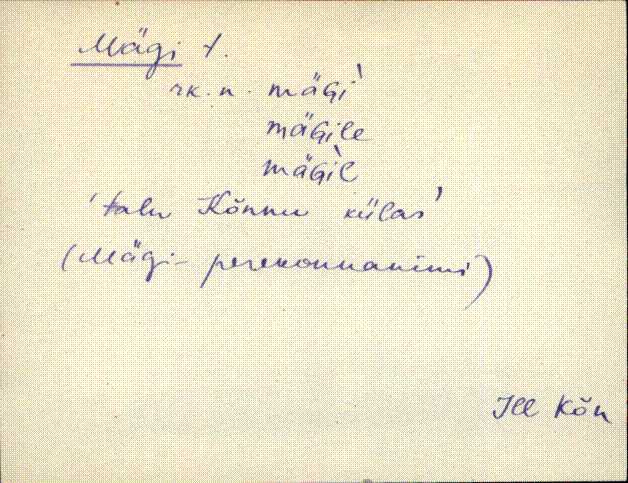 Mägi t.
rk. n. mäɢi`
mäɢile
mäɢi`l
'talu Kõnnu külas'
(Mägi - perekonnanimi)
Jll Kõn